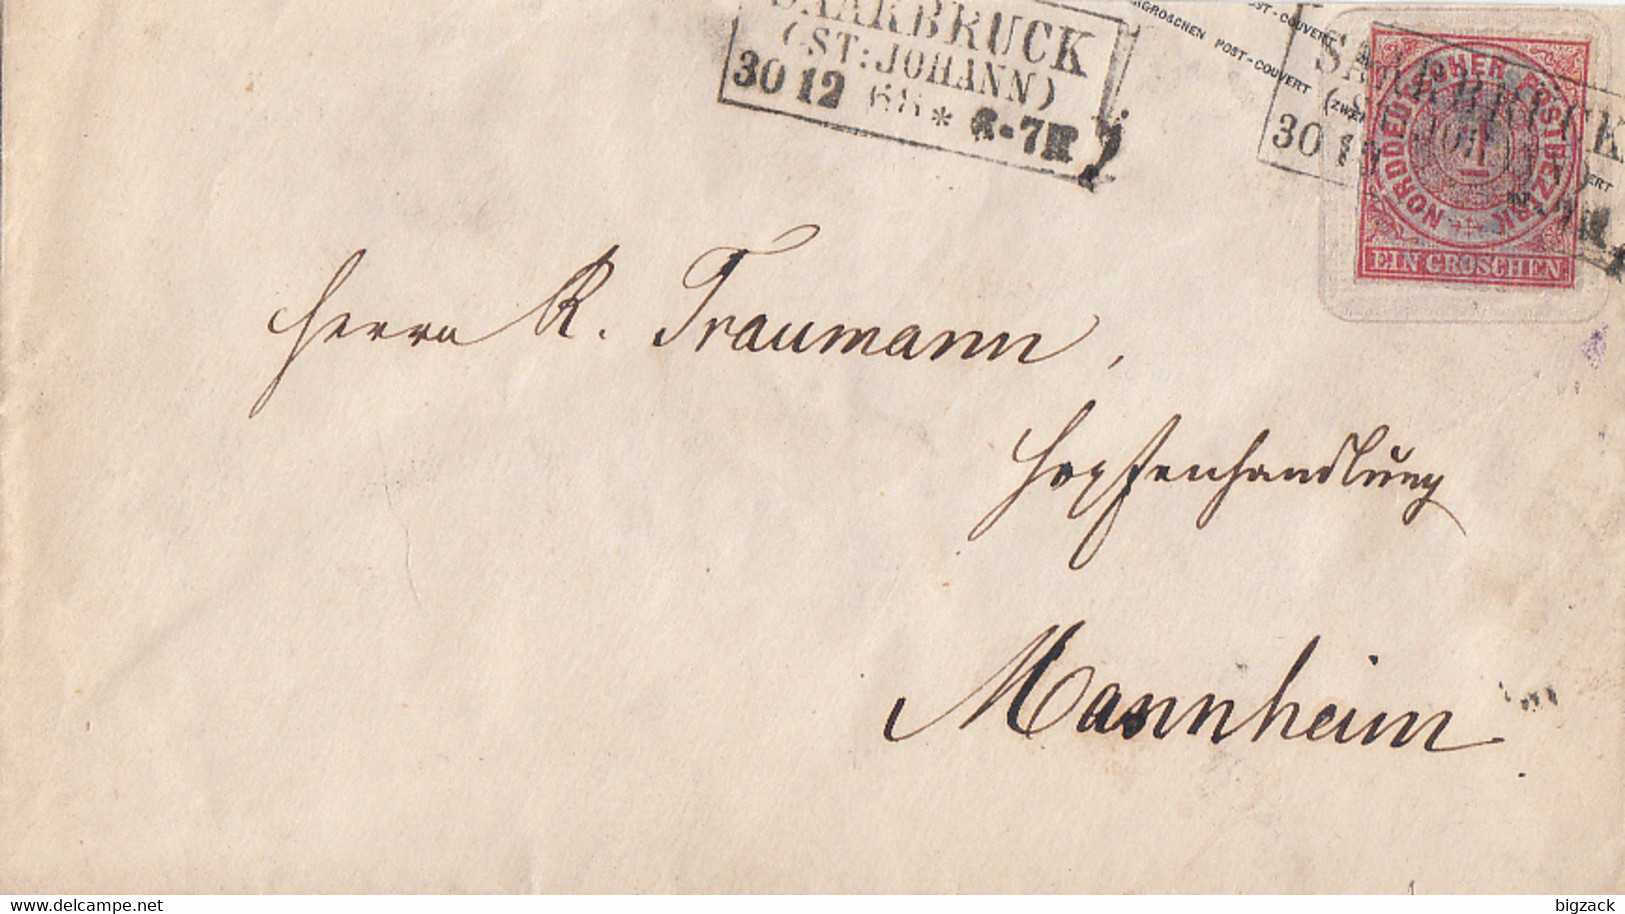 SAARBRUCK
(ST: JOHANN)
30 12 68 * 6-7N
GROSCHEN POST-COUVERT
POST-COUVERT
SAARBRUCK
30 12
NORDDEUTSCHER POSTBEZIRK
1
EIN GROSCHEN
Herrn R. Traumann,
Hopfenhandlung
Mannheim
www.delcampe.net
bigzack